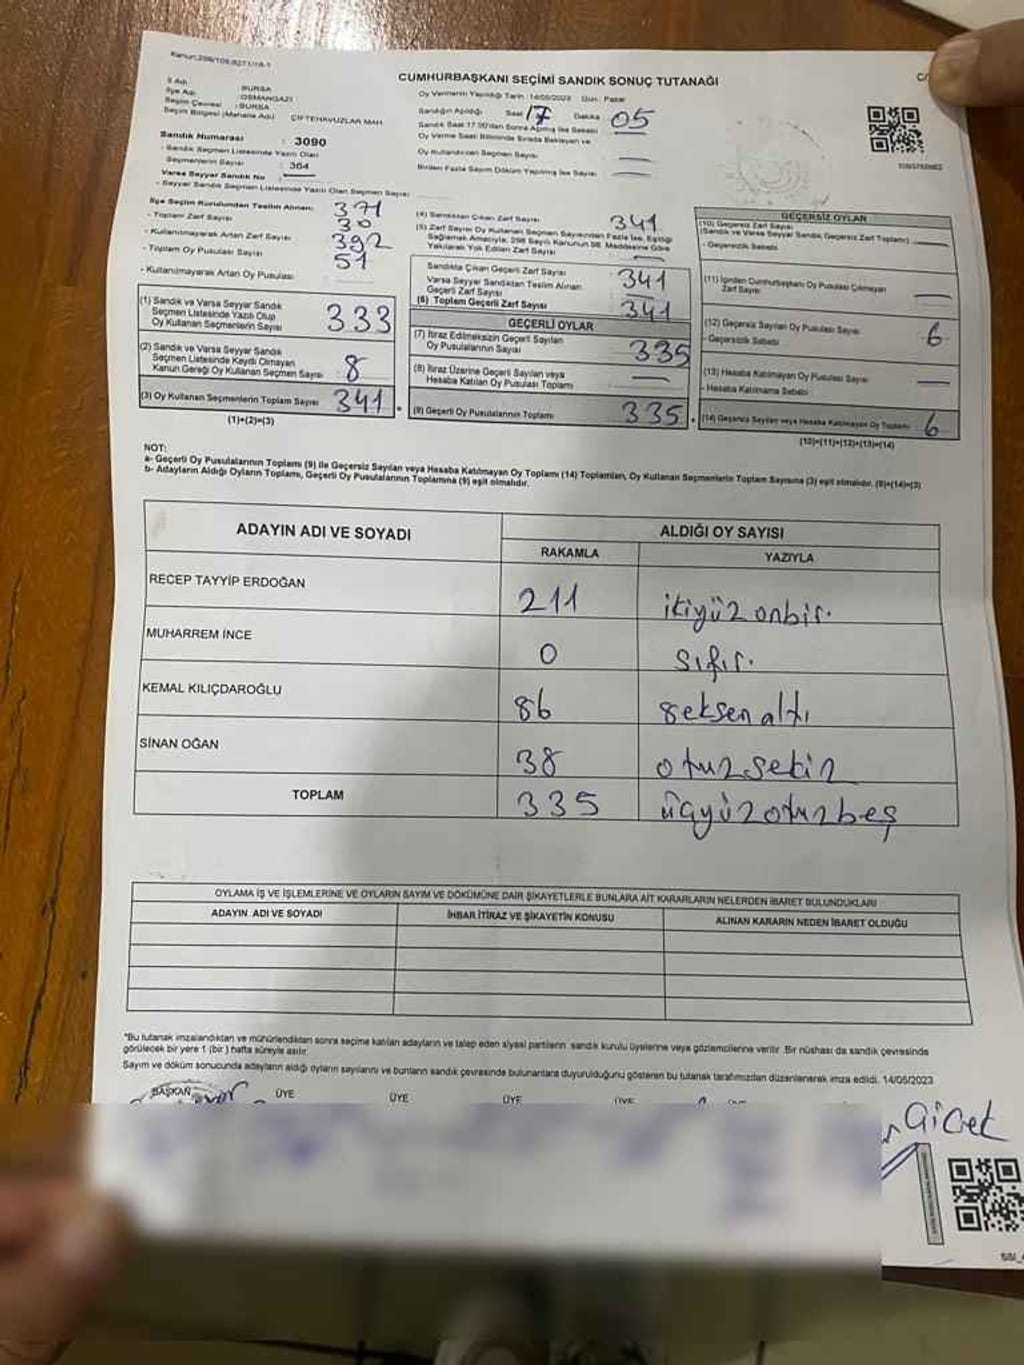 Kanun:298/105,6271/18-1
CUMHURBAŞKANI SEÇİMİ SANDIK SONUÇ TUTANAĞI
İl Adı : BURSA
İlçe Adı : OSMANGAZİ
Seçim Çevresi : BURSA
Seçim Bölgesi (Mahalle Adı) : ÇİFTEHAVUZLAR MAH.
Sandık Numarası : 3090
- Sandık Seçmen Listesinde Yazılı Olan Seçmenlerin Sayısı : 364
Varsa Seyyar Sandık No
- Seyyar Sandık Seçmen Listesinde Yazılı Olan Seçmen Sayısı
Oy Vermenin Yapıldığı Tarih : 14/05/2023 Gün : Pazar
Sandığın Açıldığı Saat 17 Dakika 05
Sandık Saat 17.00'den Sonra Açılmış İse Sebebi
Oy Verme Saati Bitiminde Sırada Bekleyen ve
Oy Kullandırılan Seçmen Sayısı
Birden Fazla Sayım Döküm Yapılmış İse Sayısı
İlçe Seçim Kurulundan Teslim Alınan;
- Toplam Zarf Sayısı 371
- Kullanılmayarak Artan Zarf Sayısı 30
- Toplam Oy Pusulası Sayısı 392
- Kullanılmayarak Artan Oy Pusulası 51
(1) Sandık ve Varsa Seyyar Sandık
Seçmen Listesinde Yazılı Olup
Oy Kullanan Seçmenlerin Sayısı 333
(2) Sandık ve Varsa Seyyar Sandık
Seçmen Listesinde Kaydı Olmayan
Kanun Gereği Oy Kullanan Seçmen Sayısı 8
(3) Oy Kullanan Seçmenlerin Toplam Sayısı 341
(1)+(2)=(3)
(4) Sandıktan Çıkan Zarf Sayısı 341
(5) Zarf Sayısı Oy Kullanan Seçmen Sayısından Fazla İse, Eşitliği
Sağlamak Amacıyla, 298 Sayılı Kanunun 98. Maddesine Göre
Yakılarak Yok Edilen Zarf Sayısı
Sandıkta Çıkan Geçerli Zarf Sayısı 341
Varsa Seyyar Sandıktan Teslim Alınan
Geçerli Zarf Sayısı
(6) Toplam Geçerli Zarf Sayısı 341
GEÇERLİ OYLAR
(7) İtiraz Edilmeksizin Geçerli Sayılan
Oy Pusulalarının Sayısı 335
(8) İtiraz Üzerine Geçerli Sayılan veya
Hesaba Katılan Oy Pusulası Toplamı
(9) Geçerli Oy Pusulalarının Toplamı 335
GEÇERSİZ OYLAR
(10) Geçersiz Zarf Sayısı
(Sandık ve Varsa Seyyar Sandık Geçersiz Zarf Toplamı)
- Geçersizlik Sebebi
(11) İçinden Cumhurbaşkanı Oy Pusulası Çıkmayan
Zarf Sayısı
(12) Geçersiz Sayılan Oy Pusulası Sayısı 6
- Geçersizlik Sebebi
(13) Hesaba Katılmayan Oy Pusulası Sayısı
- Hesaba Katılmama Sebebi
(14) Geçersiz Sayılan veya Hesaba Katılmayan Oy Toplamı 6
(10)+(11)+(12)+(13)=(14)
NOT:
a- Geçerli Oy Pusulalarının Toplamı (9) ile Geçersiz Sayılan veya Hesaba Katılmayan Oy Toplamı (14) Toplamları, Oy Kullanan Seçmenlerin Toplam Sayısına (3) eşit olmalıdır. (9)+(14)=(3)
b- Adayların Aldığı Oyların Toplamı, Geçerli Oy Pusulalarının Toplamına (9) eşit olmalıdır.
ADAYIN ADI VE SOYADI ALDIĞI OY SAYISI
RAKAMLA YAZIYLA
RECEP TAYYİP ERDOĞAN 211 ikiyüz onbir.
MUHARREM İNCE 0 sıfır.
KEMAL KILIÇDAROĞLU 86 seksen altı
SİNAN OĞAN 38 otuzsekiz
TOPLAM 335 üçyüzotuzbeş
OYLAMA İŞ VE İŞLEMLERİNE VE OYLARIN SAYIM VE DÖKÜMÜNE DAİR ŞİKAYETLERLE BUNLARA AİT KARARLARIN NELERDEN İBARET BULUNDUKLARI
ADAYIN ADI VE SOYADI İHBAR İTİRAZ VE ŞİKAYETİN KONUSU ALINAN KARARIN NEDEN İBARET OLDUĞU
*Bu tutanak imzalandıktan ve mühürlendikten sonra seçime katılan adayların ve talep eden siyasi partilerin sandık kurulu üyelerine veya gözlemcilerine verilir. Bir nüshası da sandık çevresinde
görülecek bir yere 1 (bir) hafta süreyle asılır.
Sayım ve döküm sonucunda adayların aldığı oyların sayılarını ve bunların sandık çevresinde bulunanlara duyurulduğunu gösteren bu tutanak tarafımızdan düzenlenerek imza edildi. 14/05/2023
BAŞKAN ÜYE ÜYE ÜYE ÜYE